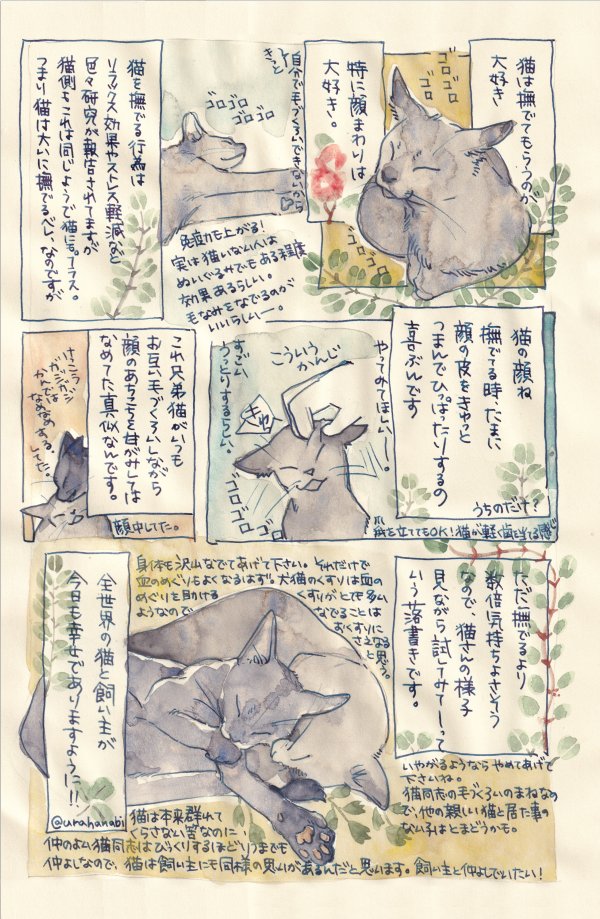 猫は撫でてもらうのが
大好き
特に顔まわりは
大好き。
ゴロ
ゴロ
ゴロ
ゴロゴロ
自分で毛づくろいできないから
きっと
ゴロゴロ
ゴロゴロ
猫を撫でる行為は
リラックス効果やストレス軽減など
色々研究が報告されてますが
猫側もこれは同じようで猫にもプラス。
つまり猫は大いに撫でるべし、なのですが
免疫力も上がる!
実は猫いない人は
ぬいぐるみでもある程度
効果あるらしい。
毛なみをなでるのが
いいらしいー。
猫の顔ね
撫でてる時、たまに
顔の皮をきゅっと
つまんでひっぱったりするの
喜ぶんです
うちのだけ?
やってみてほしいー。
こういう
かんじ
きゅっ
すごい
うっとりするらしい。
ゴロゴロ
ゴロゴロ
爪を立ててもOK!猫が軽く歯を当てる感じ
これ兄弟猫がいつも
お互い毛づくろいしながら
顔のあちこちを甘がみしては
なめてた真似なんです。
かんでいなめなめする。
してた。
顔中してた。
ただ撫でるより
数倍気持ちよさそう
なので、猫さんの様子
見ながら試してみてーって
いう落書きです。
いやがるようならやめてあげて
下さいね。
猫同志の毛づくろいのまねなの
で、他の親しい猫と居た事の
ない子はとまどうかも。
身体も沢山なでてあげて下さい。それだけで
血のめぐりもよくなるます。犬猫のくすりは血の
めぐりを助ける くすりがとても多い
ようなので なでることは
おくすりに
さえなる
と思う。
全世界の猫と飼い主が
今日も幸せでありますように!!
@urahanabi
猫は本来群れて
くらさない筈なのに、
仲のよい猫同志はびっくりするほどいつまでも
仲よしなので、猫は飼い主にも同様の思いがあるんだと思います。飼い主と仲よしでいたい!